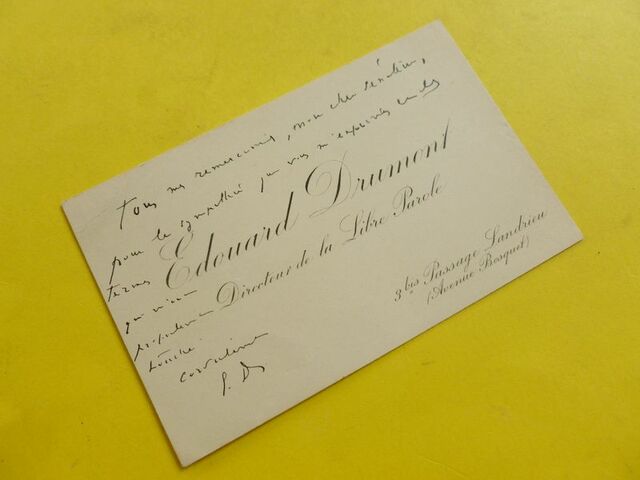 Tous mes remerciements, mon cher sénateur,
pour la sympathie que vous m'exprimez en des
termes
Edouard Drumont
qui m'ont
Directeur de la Libre Parole
profondément
touché.
3 bis Passage Landrieu
(Avenue Bosquet)
cordialement
E. D